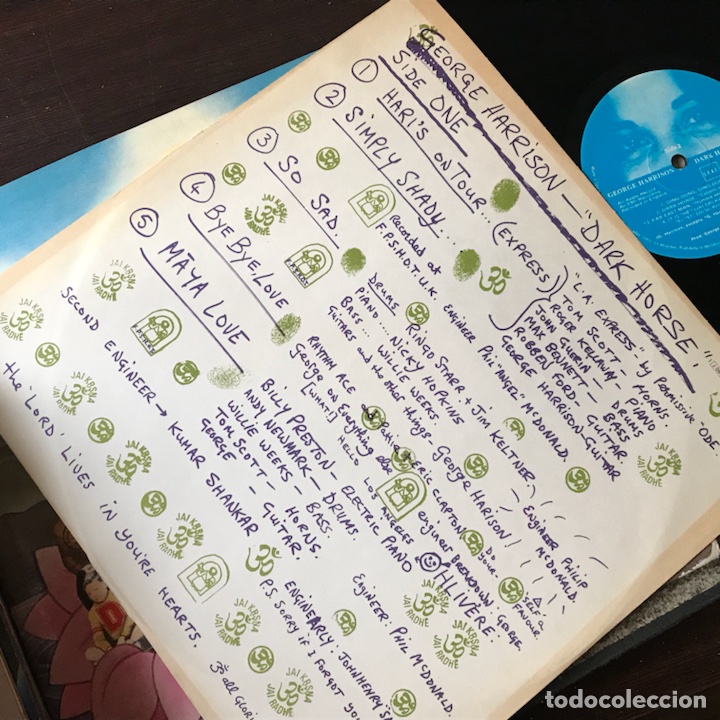 GEORGE HARRISON — "DARK HORSE"
SIDE ONE —
① HARI'S ON TOUR... (EXPRESS)
"L.A. EXPRESS" — by PERMISSION ODE.
TOM SCOTT — HORNS.
ROGER KELLAWAY — PIANO
JOHN GUERIN — DRUMS
MAX BENNETT — BASS
ROBBEN FORD. — GUITAR.
GEORGE HARRISON — GUITAR
② SIMPLY SHADY...
Recorded at
F.P.S.H.O.T. U.K. ENGINEER PHIL "ANGEL" McDONALD.
DRUMS — RINGO STARR + JIM KELTNER.
PIANO... NICKY HOPKINS
BASS... WILLIE WEEKS.
GUITARS and the other things — GEORGE HARISON!
ENGINEER PHILIP
McDONALD.
③ SO SAD.
④ BYE BYE, LOVE
RHYTHM ACE
GEORGE on Everything else
[WHAT!]
HELLO
LOS ANGELES
ERIC CLAPTON
ENGINEER BREWDOWN GEORGE.
DO
YOUR
SELF a
FAVOUR
⑤ MĀYA LOVE
BILLY PRESTON — ELECTRIC PIANO
ANDY NEWMARK — DRUMS.
WILLIE WEEKS — BASS.
TOM SCOTT — HORNS.
GEORGE — GUITAR.
OHLIVERE
ENGINEER: PHIL McDONALD.
SECOND ENGINEER → KUMAR SHANKAR
ENGINEARLY: JOHN HENRY
P.S. SORRY IF I FORGOT YOU
all Glori
the 'LORD' LIVES IN YOU'RE HEARTS.
JAI KRSNA
JAI RADHE
F.P.S.H.O.T.
GEORGE HARRISON
DARK H
todocoleccion
todocoleccion.net